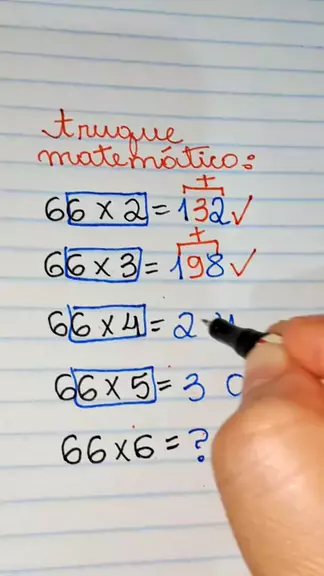 truque
matemático:
+
66 x 2 = 132 ✓
+
66 x 3 = 198 ✓
66 x 4 = 2 4
66 x 5 = 3 0
66 x 6 = ?